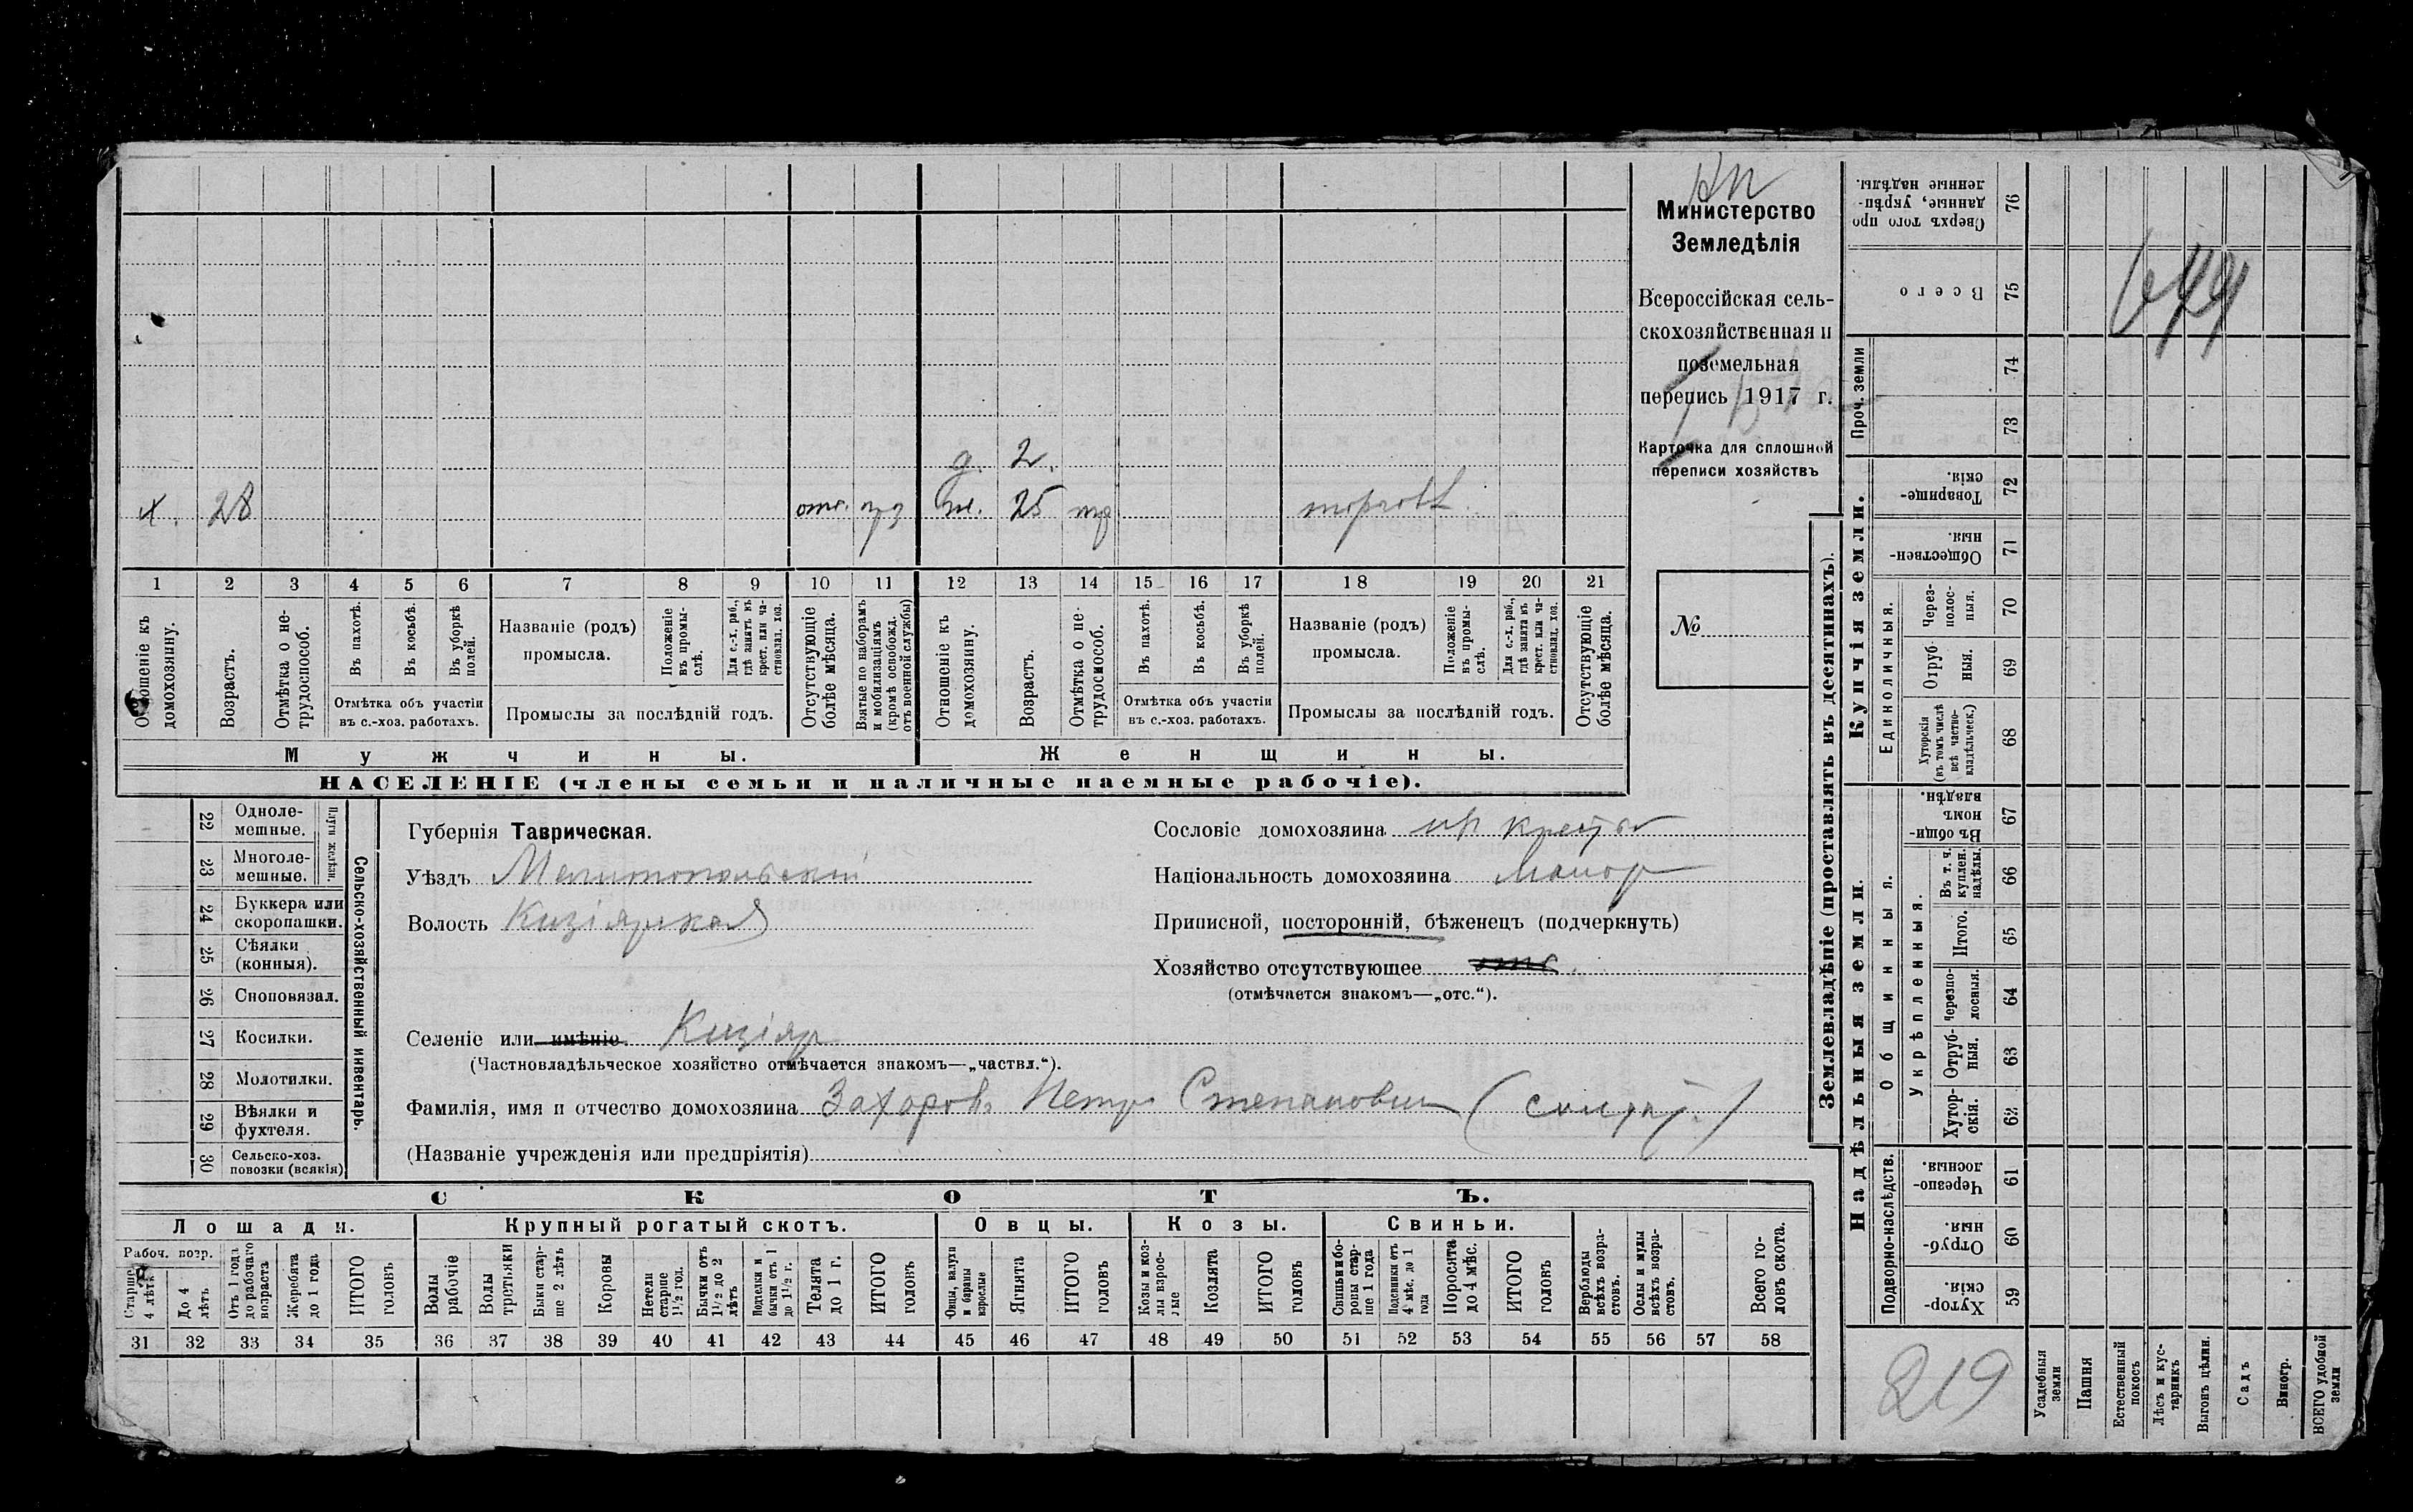 КП
Министерство
Земледѣлія
Всероссійская сель-
скохозяйственная и
поземельная
перепись 1917 г.
Карточка для сплошной
переписи хозяйствъ
№
д. 2.
х. 28 отс. ж. 25
1 2 3 4 5 6 7 8 9 10 11 12 13 14 15 16 17 18 19 20 21
Отношеніе къ домохозяину.
Возрастъ.
Отмѣтка о не-трудоспособ.
Въ пахотѣ.
Въ косьбѣ.
Въ уборкѣ полей.
Отмѣтка объ участіи
въ с.-хоз. работахъ.
Названіе (родъ)
промысла.
Положеніе въ промы-слѣ.
Для с.-х. раб., гдѣ занятъ въ крест. или ча-стновлад. хоз.
Промыслы за послѣдній годъ.
Отсутствующіе болѣе мѣсяца.
Взятые по наборамъ и мобилизаціямъ (кромѣ освобожд. отъ военной службы)
Отношеніе къ домохозяину.
Возрастъ.
Отмѣтка о не-трудоспособ.
Въ пахотѣ.
Въ косьбѣ.
Въ уборкѣ полей.
Отмѣтка объ участіи
въ с.-хоз. работахъ.
Названіе (родъ)
промысла.
Положеніе въ промы-слѣ.
Для с.-х. раб., гдѣ занята въ крест. или ча-стновлад. хоз.
Промыслы за послѣдній годъ.
Отсутствующіе болѣе мѣсяца.
Мужчины. Женщины.
НАСЕЛЕНІЕ (члены семьи и наличные наемные рабочіе).
22 Одноле-мешные.
23 Многоле-мешные.
Плуги желѣзн.
24 Буккера или скоропашки.
25 Сѣялки (конныя).
26 Сноповязал.
27 Косилки.
28 Молотилки.
29 Вѣялки и фухтеля.
30 Сельско-хоз. повозки (всякія)
Сельско-хозяйственный инвентарь.
Губернія Таврическая.
Уѣздъ Мелитопольскій
Волость Кизіярская
Сословіе домохозяина
Національность домохозяина Малор
Приписной, посторонній, бѣженецъ (подчеркнуть)
Хозяйство отсутствующее отс
(отмѣчается знакомъ—„отс.“).
Селеніе или имѣніе Кизіяр
(Частновладѣльческое хозяйство отмѣчается знакомъ—„частвл.“).
Фамилія, имя и отчество домохозяина Захаровъ Петр Степанович (солдат.)
(Названіе учрежденія или предпріятія)
СКОТЪ.
Лошади. Крупный рогатый скотъ. Овцы. Козы. Свиньи.
Рабоч. возр.
Старше 4 лѣтъ
До 4 лѣтъ
Отъ 1 года до рабочаго возраста
Жеребята до 1 года
ИТОГО головъ
Волы рабочіе
Волы третьяки
Быки стар-ше 2 лѣтъ
Коровы
Нетели старше 1½ год.
Бычки отъ 1½ до 2 лѣтъ
Подтелки и бычки отъ 1 до 1½ г.
Телята до 1 г.
ИТОГО головъ
Овцы, валухи и бараны взрослые
Ягнята
ИТОГО головъ
Козы и коз-лы взрос-лые
Козлята
ИТОГО головъ
Свиньи и бо-ровы стар-ше 1 года
Подсвинки отъ 4 мѣс. до 1 года
Поросята до 4 мѣс.
ИТОГО головъ
Верблюды всѣхъ возра-стовъ.
Ослы и мулы всѣхъ возра-стовъ.
Всего го-ловъ скота.
31 32 33 34 35 36 37 38 39 40 41 42 43 44 45 46 47 48 49 50 51 52 53 54 55 56 57 58
Землевладѣніе (проставлять въ десятинахъ).
Купчія земли.
Надѣльныя земли.
Сверхъ того про-данные, укрѣп-ленные надѣлы. 76
Всего 75
Проч. земли
74
73
Товарище-скія. 72
Обществен-ныя. 71
Единоличныя.
Через-полос-ныя. 70
Отруб-ныя. 69
Хуторскія (въ томъ числѣ всѣ частно-владѣльческ.) 68
Общинныя.
Въ общи-номъ владѣн. 67
Укрѣпленныя.
Въ т. ч. куплен. надѣлы. 66
Итого. 65
Черезпо-лосныя. 64
Отруб-ныя. 63
Хутор-скія. 62
Подворно-наслѣдств.
Черезпо-лосныя. 61
Отруб-ныя. 60
Хутор-скія. 59
219
Усадебныя земли
Пашня
Естественный покосъ
Лѣсъ и кус-тарникъ
Выгонъ цѣлин.
Садъ
Виногр.
ВСЕГО удобной земли